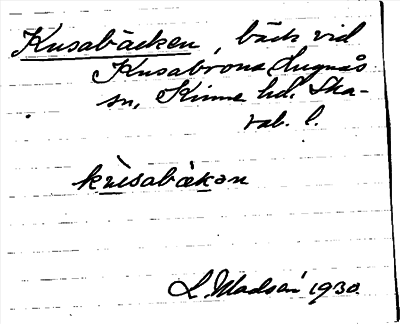 Kusabäcken, bäck vid
Kusabrona Lugnås
sn, Kinne hd. Ska-
rab. l.
kùsabäkən
1930.